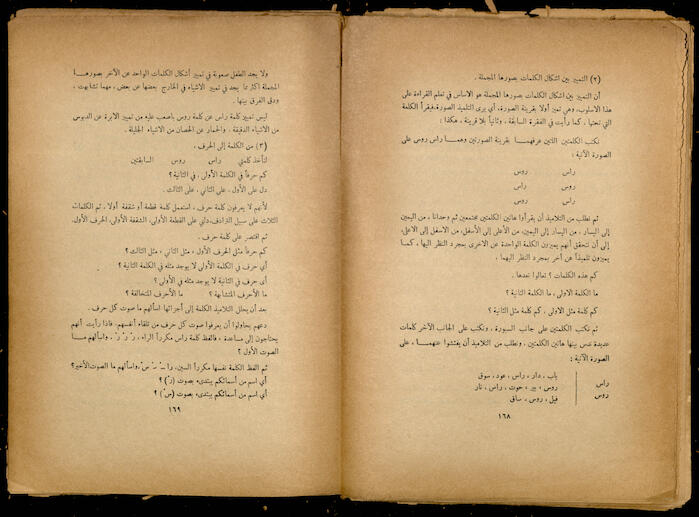 (٢) التمييز بين اشكال الكلمات بصورها المجملة .
أن التمييز بين اشكال الكلمات بصورها المجملة هو الاساس في تعلم القراءة على
هذا الاسلوب، وهي تميز أولا بقرينة الصورة، أي يرى التلميذ الصورة، فيقرأ الكلمة
التي تحتها ، كما رأيت في الفقرة السابقة ، وثانياً بلا قرينة ، هكذا :
نكتب الكلمتين اللتين عرفهمـا بقرينة الصورتين وهمـا راس روس على
الصورة الآتية :
راس روس
روس راس
راس روس
ثم نطلب من التلاميذ أن يقرأوا هاتين الكلمتين مجتمعين ثم وحدانا ، من اليمين
إلى اليسار ، من اليسار إلى اليمين، من الأعلى إلى الأسفل، من الاسفل إلى الاعلى،
إلى أن تتحقق أنهم يميزون الكلمة الواحدة عن الاخرى بمجرد النظر اليها ، كمـا
يميزون تلميذاً عن آخر بمجرد النظر اليهما .
كم هذه الكلمات ؟ تعالوا نعدها .
ما الكلمة الاولى ، ما الكلمة الثانية ؟
كم كلمة مثل الاولى ، كم كلمة مثل الثانية ؟
ثم نكتب الكلمتين على جانب السبورة ، ونكتب على الجانب الآخر كلمات
عديدة ندس بينها هاتين الكلمتين . ونطلب من التلاميذ أن يفتشوا عنهمـا ، على
الصورة الآتية :
راس باب ، دار ، راس ، عود ، سوق
روس ، بير ، حوت ، راس ، نار
روس فيل ، روس ، ساق
١٦٨
ولا يجد الطفل صعوبة في تمييز أشكال الكلمات الواحد عن الآخر بصورهـا
المجملة اكثر مما يجد في تمييز الاشياء في الخارج بعضها عن بعض ، مهما تشابهت ،
ودق الفرق بينها .
ليس تمييز كلمة راس عن كلمة روس باصعب عليه من تمييز الابرة عن الدبوس
من الاشياء الدقيقة ، والحمار عن الحصان من الاشياء الجليلة .
(٣) من الكلمة إلى الحرف .
لتأخذ كلمتي راس روس السابقتين
كم حرفاً في الكلمة الأولى ، في الثانية ؟
دل على الأول ، على الثاني ، على الثالث .
لأنهم لا يعرفون كلمة حرف ، استعمل كلمة قطعة أو شقفة أولا ، ثم الكلمات
الثلاث على سبيل الترادف، دلني على القطعة الأولى، الشقفة الأولى، الحرف الأول.
ثم اقتصر على كلمة حرف .
كم حرفاً مثل الحرف الأول ، مثل الثاني ، مثل الثالث ؟
أي حرف في الكلمة الأولى لا يوجد مثله في الكلمة الثانية ؟
أي حرف في الثانية لا يوجد مثله في الأولى ؟
ما الأحرف المتشابهة ؟ ما الأحرف المتخالفة ؟
بعد أن يحلل التلاميذ الكلمة إلى أجزائها اسألهم ما صوت كل حرف .
دعهم يحاولوا أن يعرفوا صوت كل حرف من تلقاء أنفسهم. فاذا رأيت أنهم
يحتاجون إلى مساعدة ، فالفظ كلمة راس مكرراً الراء، رَ رَ رَ ، واسألهم مـا
الصوت الأول ؟
ثم الفظ الكلمة نفسها مكرراً السين، را سْ سْ سْ، واسألهم ما الصوت الأخير؟
أي اسم من أسمائكم يبتدىء بصوت (رَ) ؟
أي اسم من أسمائكم يبتدىء بصوت (سْ) ؟
١٦٩